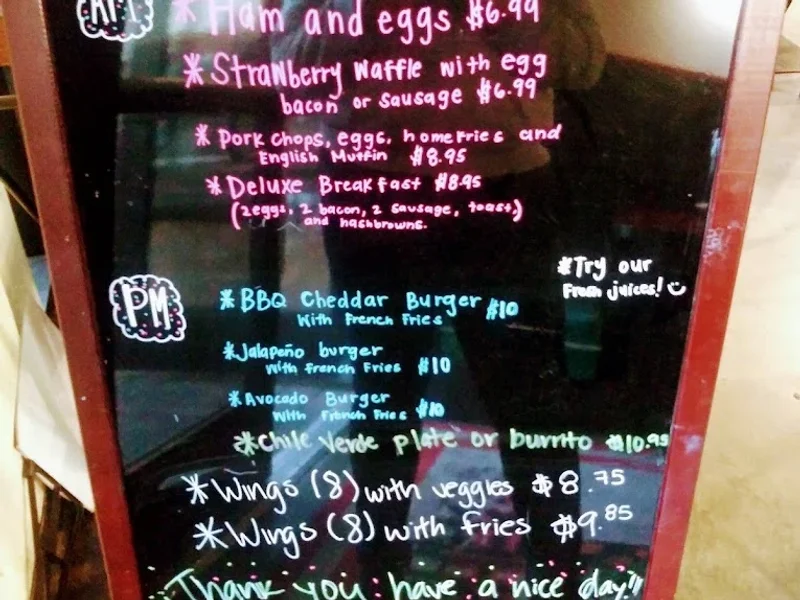 AM
* Ham and eggs $6.99
* Strawberry Waffle with egg
bacon or sausage $6.99
* Pork Chops, eggs, homefries and
English Muffin $8.95
* Deluxe Breakfast $8.95
(2eggs, 2 bacon, 2 sausage, toast,)
and hashbrowns.
*Try our
Fresh juices!
PM
* BBQ Cheddar Burger $10
With French Fries
*Jalapeño burger
With French Fries $10
*Avocado Burger
With French Fries $10
*Chile Verde plate or burrito $10.95
*Wings (8) with veggies $8.75
*Wings (8) with fries $9.85
Thank you have a nice day!!